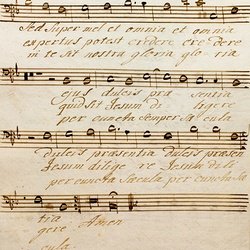 Sed super mel et omnia et omnia
expertus potest credere credere
in te sit nostra gloria gloria
ejus dulcis pra sentia
quid sit Jesum di ligere
per cuncta semper sæcula
dulcis præsentia dulcis præsen
Jesum dilige re Jesum dili
per cuncta sæcula per cuncta sæ
tia
gere Amen
cula